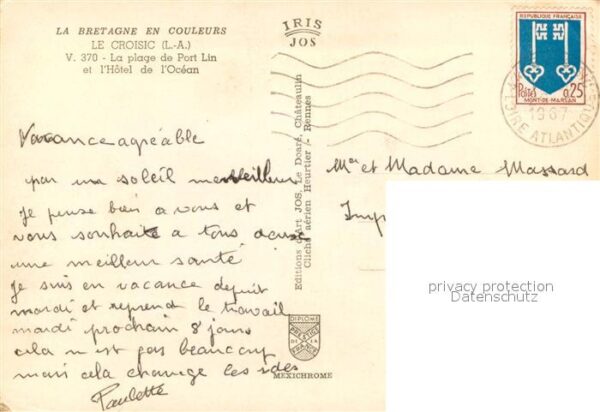 LA BRETAGNE EN COULEURS
LE CROISIC (L.-A.)
V. 370 - La plage de Port Lin
et l'Hôtel de l'Océan
IRIS
JOS
REPUBLIQUE FRANÇAISE
Postes 0,25
MONT-DE-MARSAN
1967
LOIRE ATLANTIQUE
Vacance agréable
par un soleil merveilleux
je pense bien a vous et
vous souhaite a tous deux
une meilleur santé
je suis en vacance depuit
mardi et reprend le travail
mardi prochain 8 jours
cela n'est pas beaucoup
mais cela change les idés
Paulette
Editions d'Art JOS Le Doaré, Châteaulin
Cliché aérien Heurtier - Rennes
Mr et Madame Massard
Imp
privacy protection
Datenschutz
DIPLOME
PRESTIGE
DE LA
FRANCE
MEXICHROME